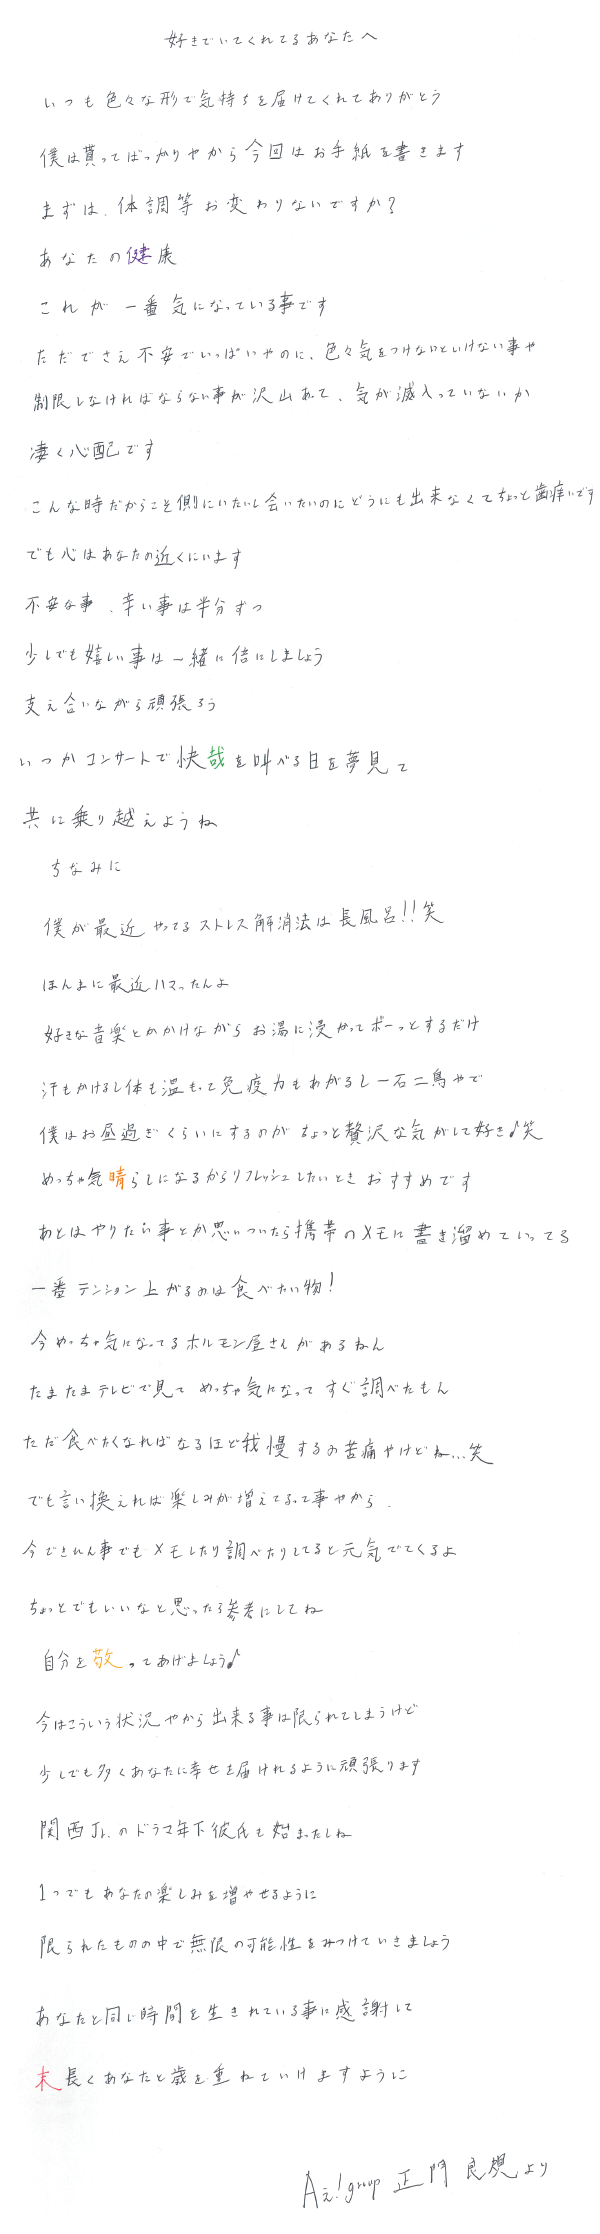 好きでいてくれてるあなたへ
いつも色々な形で気持ちを届けてくれてありがとう
僕は貰ってばっかりやから今回はお手紙を書きます
まずは、体調等お変わりないですか?
あなたの健康
これが一番気になっている事です
ただでさえ不安でいっぱいやのに、色々気をつけないといけない事や
制限しなければならない事が沢山あって、気が滅入っていないか
凄く心配です
こんな時だからこそ側にいたいし会いたいのにどうにも出来なくてちょっと歯痒いです
でも心はあなたの近くにいます
不安な事、辛い事は半分ずつ
少しでも嬉しい事は一緒に倍にしましょう
支え合いながら頑張ろう
いつかコンサートで快哉を叫べる日を夢見て
共に乗り越えようね
ちなみに
僕が最近やってるストレス解消法は長風呂!!笑
ほんまに最近ハマったんよ
好きな音楽とかかけながらお湯に浸かってボーっとするだけ
汗もかけるし体も温もって免疫力もあがるし一石二鳥やで
僕はお昼過ぎくらいにするのがちょっと贅沢な気がして好き♪笑
めっちゃ気晴らしになるからリフレッシュしたいときおすすめです
あとはやりたい事とか思いついたら携帯のメモに書き溜めていってる
一番テンション上がるのは食べたい物!
今めっちゃ気になってるホルモン屋さんがあるねん
たまたまテレビで見てめっちゃ気になってすぐ調べたもん
ただ食べたくなればなるほど我慢するの苦痛やけどね...笑
でも言い換えれば楽しみが増えてるって事やから、
今できれん事でもメモしたり調べたりしてると元気でてくるよ
ちょっとでもいいなと思ったら参考にしてね
自分を敬ってあげましょう♪
今はこういう状況やから出来る事は限られてしまうけど
少しでも多くあなたに幸せを届けれるように頑張ります
関西Jr.のドラマ年下彼氏も始まったしね
1つでもあなたの楽しみを増やせるように
限られたものの中で無限の可能性をみつけていきましょう
あなたと同じ時間を生きれている事に感謝して
末長くあなたと歳を重ねていけますように
Aぇ!group 正門良規より